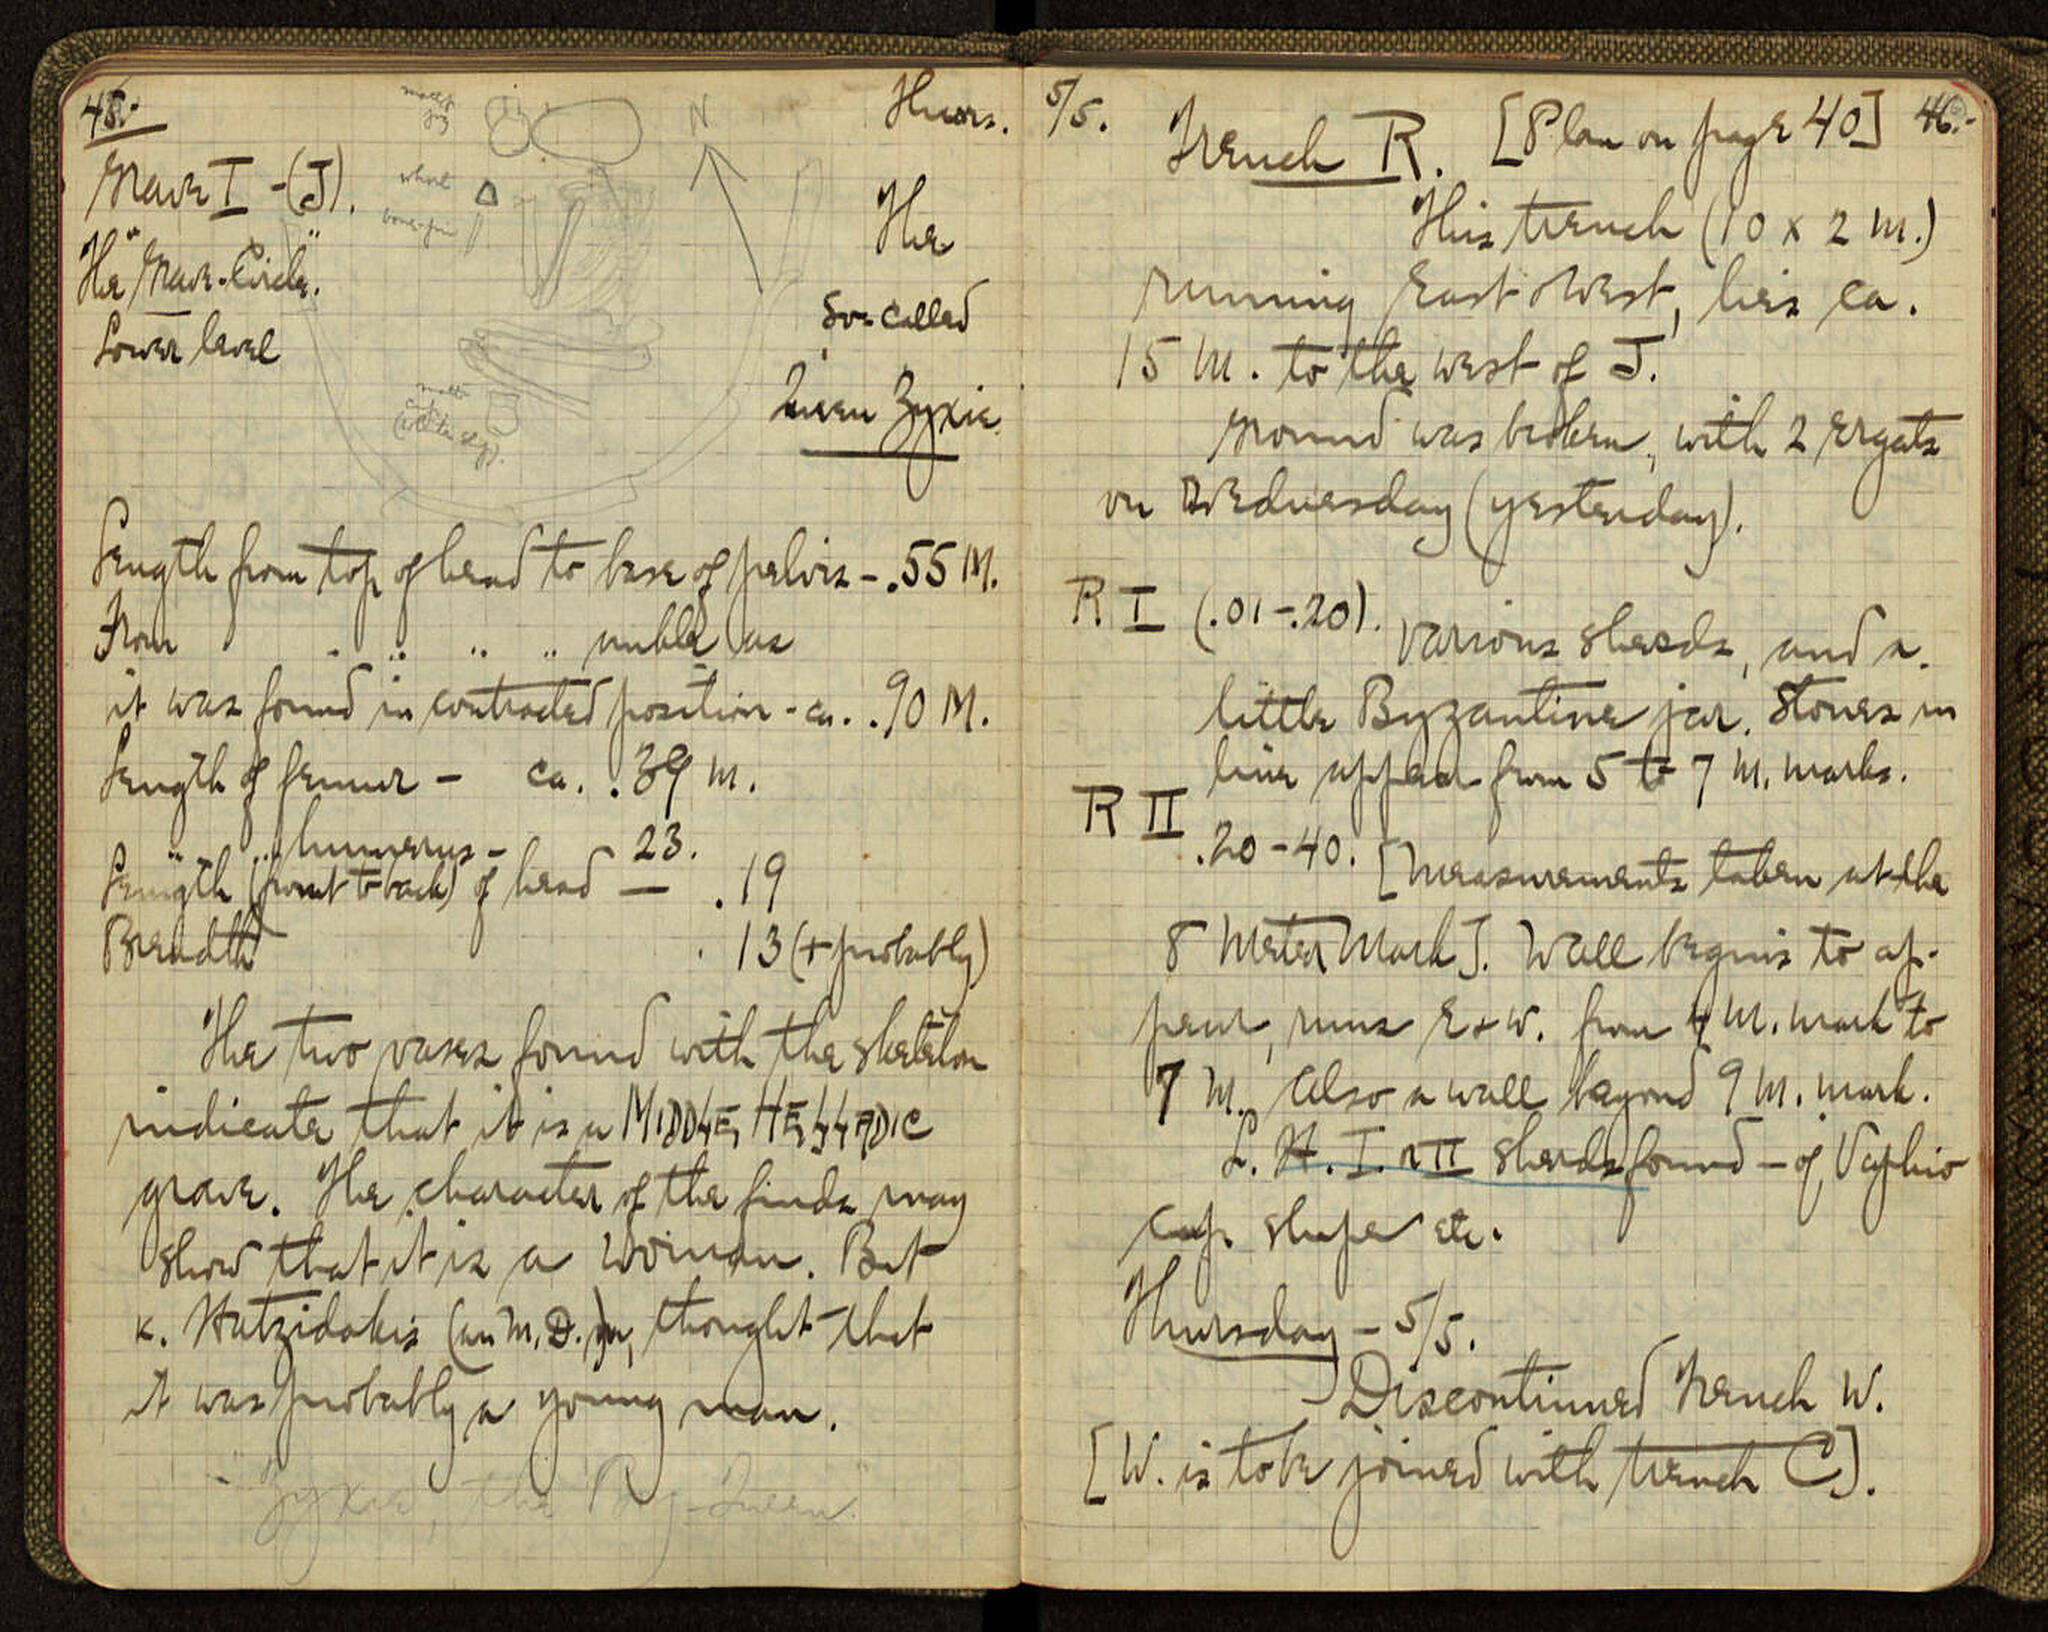 45.-
Thurs.
Grave I - (J).
The "Grave-Circle."
Lower level
N
whorl
bone-pin
The
So-called
Queen Zyxie
Length from top of head to base of pelvis - .55 M.
From " " " " ankle as
it was found in contracted position - ca. .90 M.
Length of femur - ca. .39 m.
" " humerus - 23.
Length (front to back) of head — .19
Breadth . 13 (+ probably)
The two vases found with the skeleton
indicate that it is a MIDDLE HELLADIC
grave. The character of the finds may
show that it is a woman. But
K. Hatzidakis (an M.D.), thought that
it was probably a young man.
"Zyxie, the Boy-Queen."
5/5.
46.-
Trench R. [Plan on page 40]
This trench (10 x 2 m.)
running East & West, lies ca.
15 m. to the west of J.
Ground was broken, with 2 ergats
on Wednesday (yesterday).
R I (.01-.20). Various sherds, and a
little Byzantine jar. Stones in
line appear from 5 to 7 m. marks.
R II .20-40. [Measurements taken at the
8 Meter Mark]. Wall begins to ap-
pear, runs E & W. from 4 m. mark to
7 m. Also a wall beyond 9 m. mark.
L. H. I & II sherds found - of Vaphio
cup shape etc.
Thursday - 5/5.
Discontinued Trench W.
[W. is to be joined with trench C].